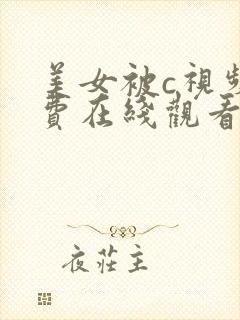 美女被c視頻
費在綫觀看
夜莊主